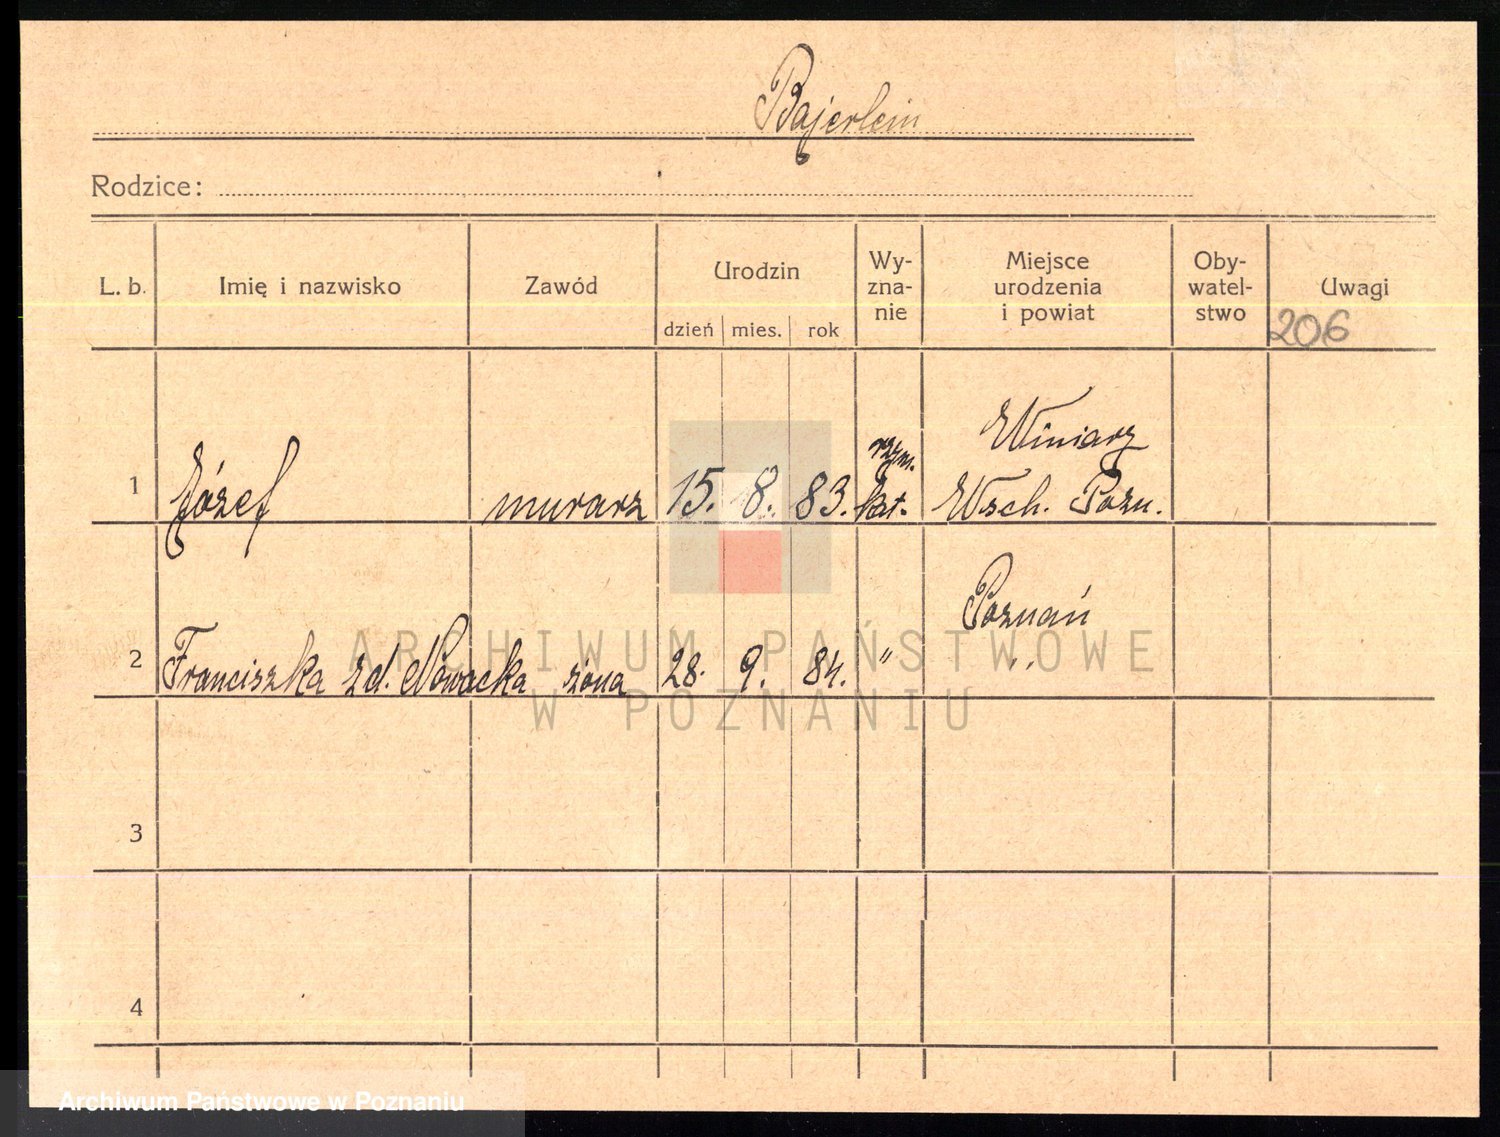 Bajerlein
Rodzice:
L. b. Imię i nazwisko Zawód Urodzin dzień mies. rok Wy-zna-nie Miejsce urodzenia i powiat Oby-watel-stwo Uwagi
206
1 Józef murarz 15. 8. 83. rzym. kat. Winiary Wsch. Pozn.
2 Franciszka zd. Nowacka żona 28. 9. 84. " Poznań
3
4
ARCHIWUM PAŃSTWOWE
W POZNANIU
Archiwum Państwowe w Poznaniu